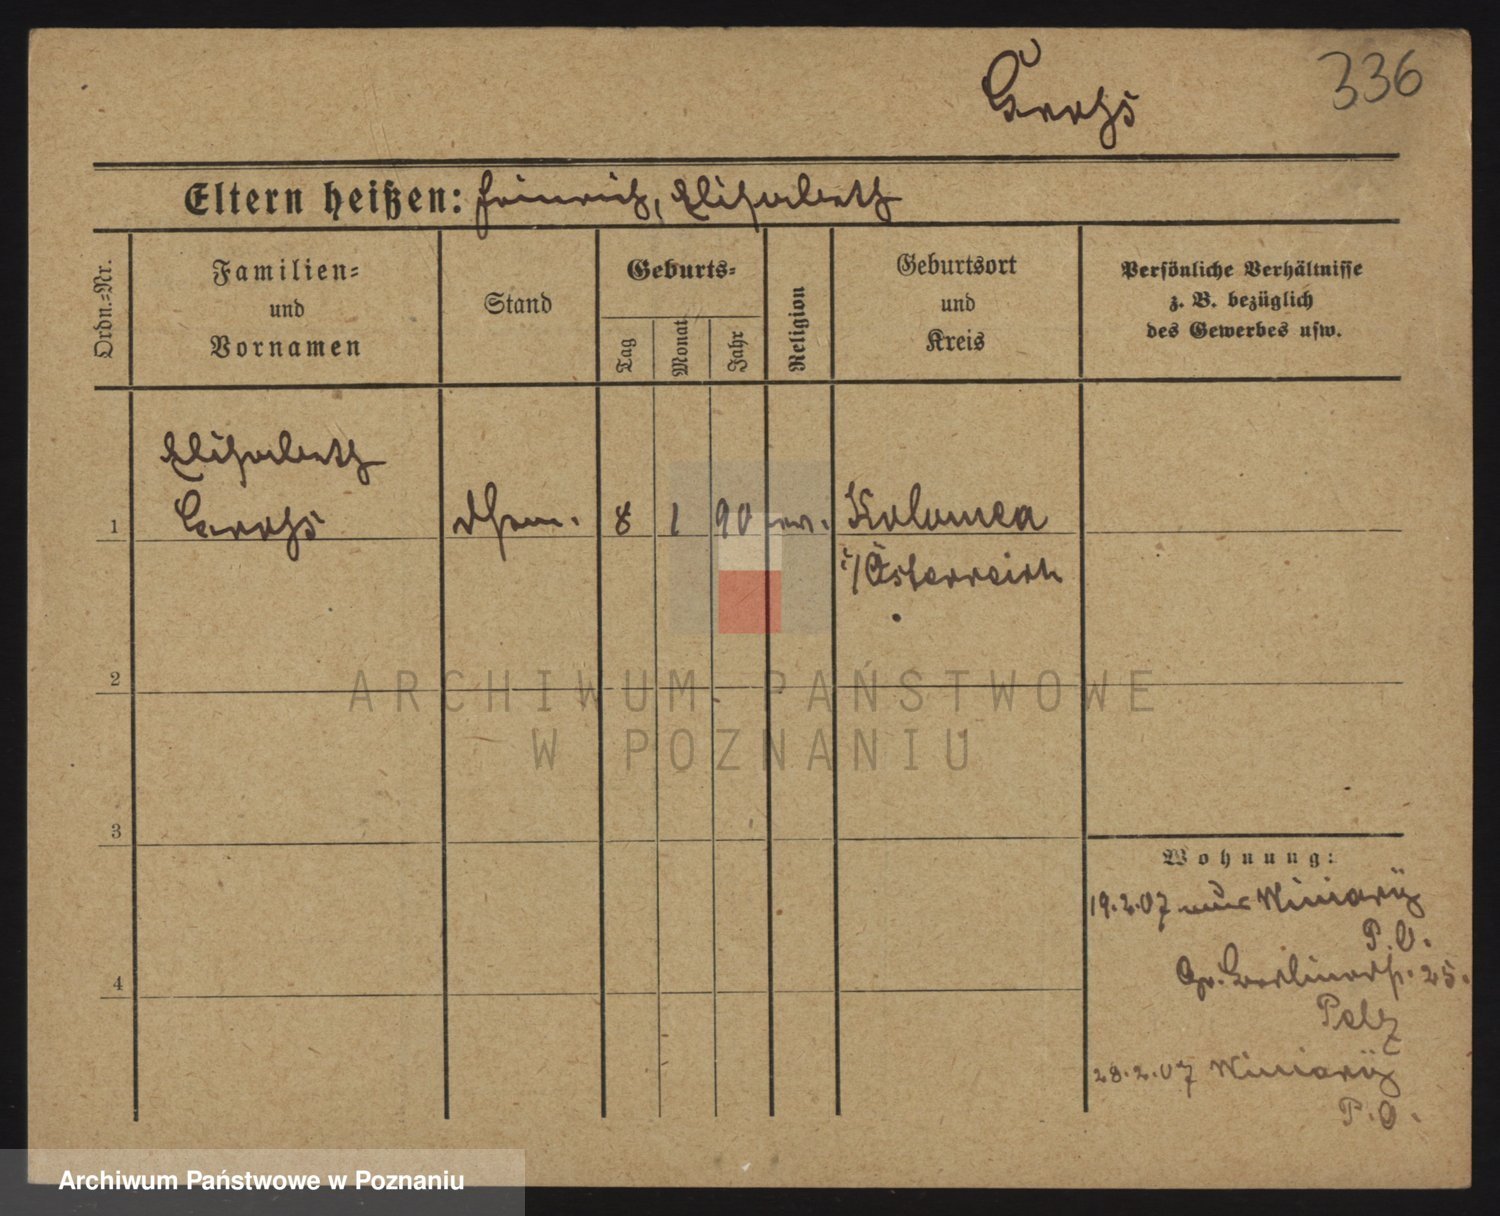 336
Eltern heißen: Heinrich, Elisabeth
Ordn.-Nr.
Familien-
und
Vornamen
Stand
Geburts-
Tag
Monat
Jahr
Religion
Geburtsort
und
Kreis
Persönliche Verhältnisse
z. B. bezüglich
des Gewerbes usw.
Elisabeth
1
8 1 90 ev. Kolomea
i/Österreich
2
ARCHIWUM PAŃSTWOWE
W POZNANIU
3
Wohnung:
19.2.07 aus Winiary
P.O.
4
Gr. Berlinerstr. 25.
Pelz
28.2.07 Winiary
P.O.
Archiwum Państwowe w Poznaniu